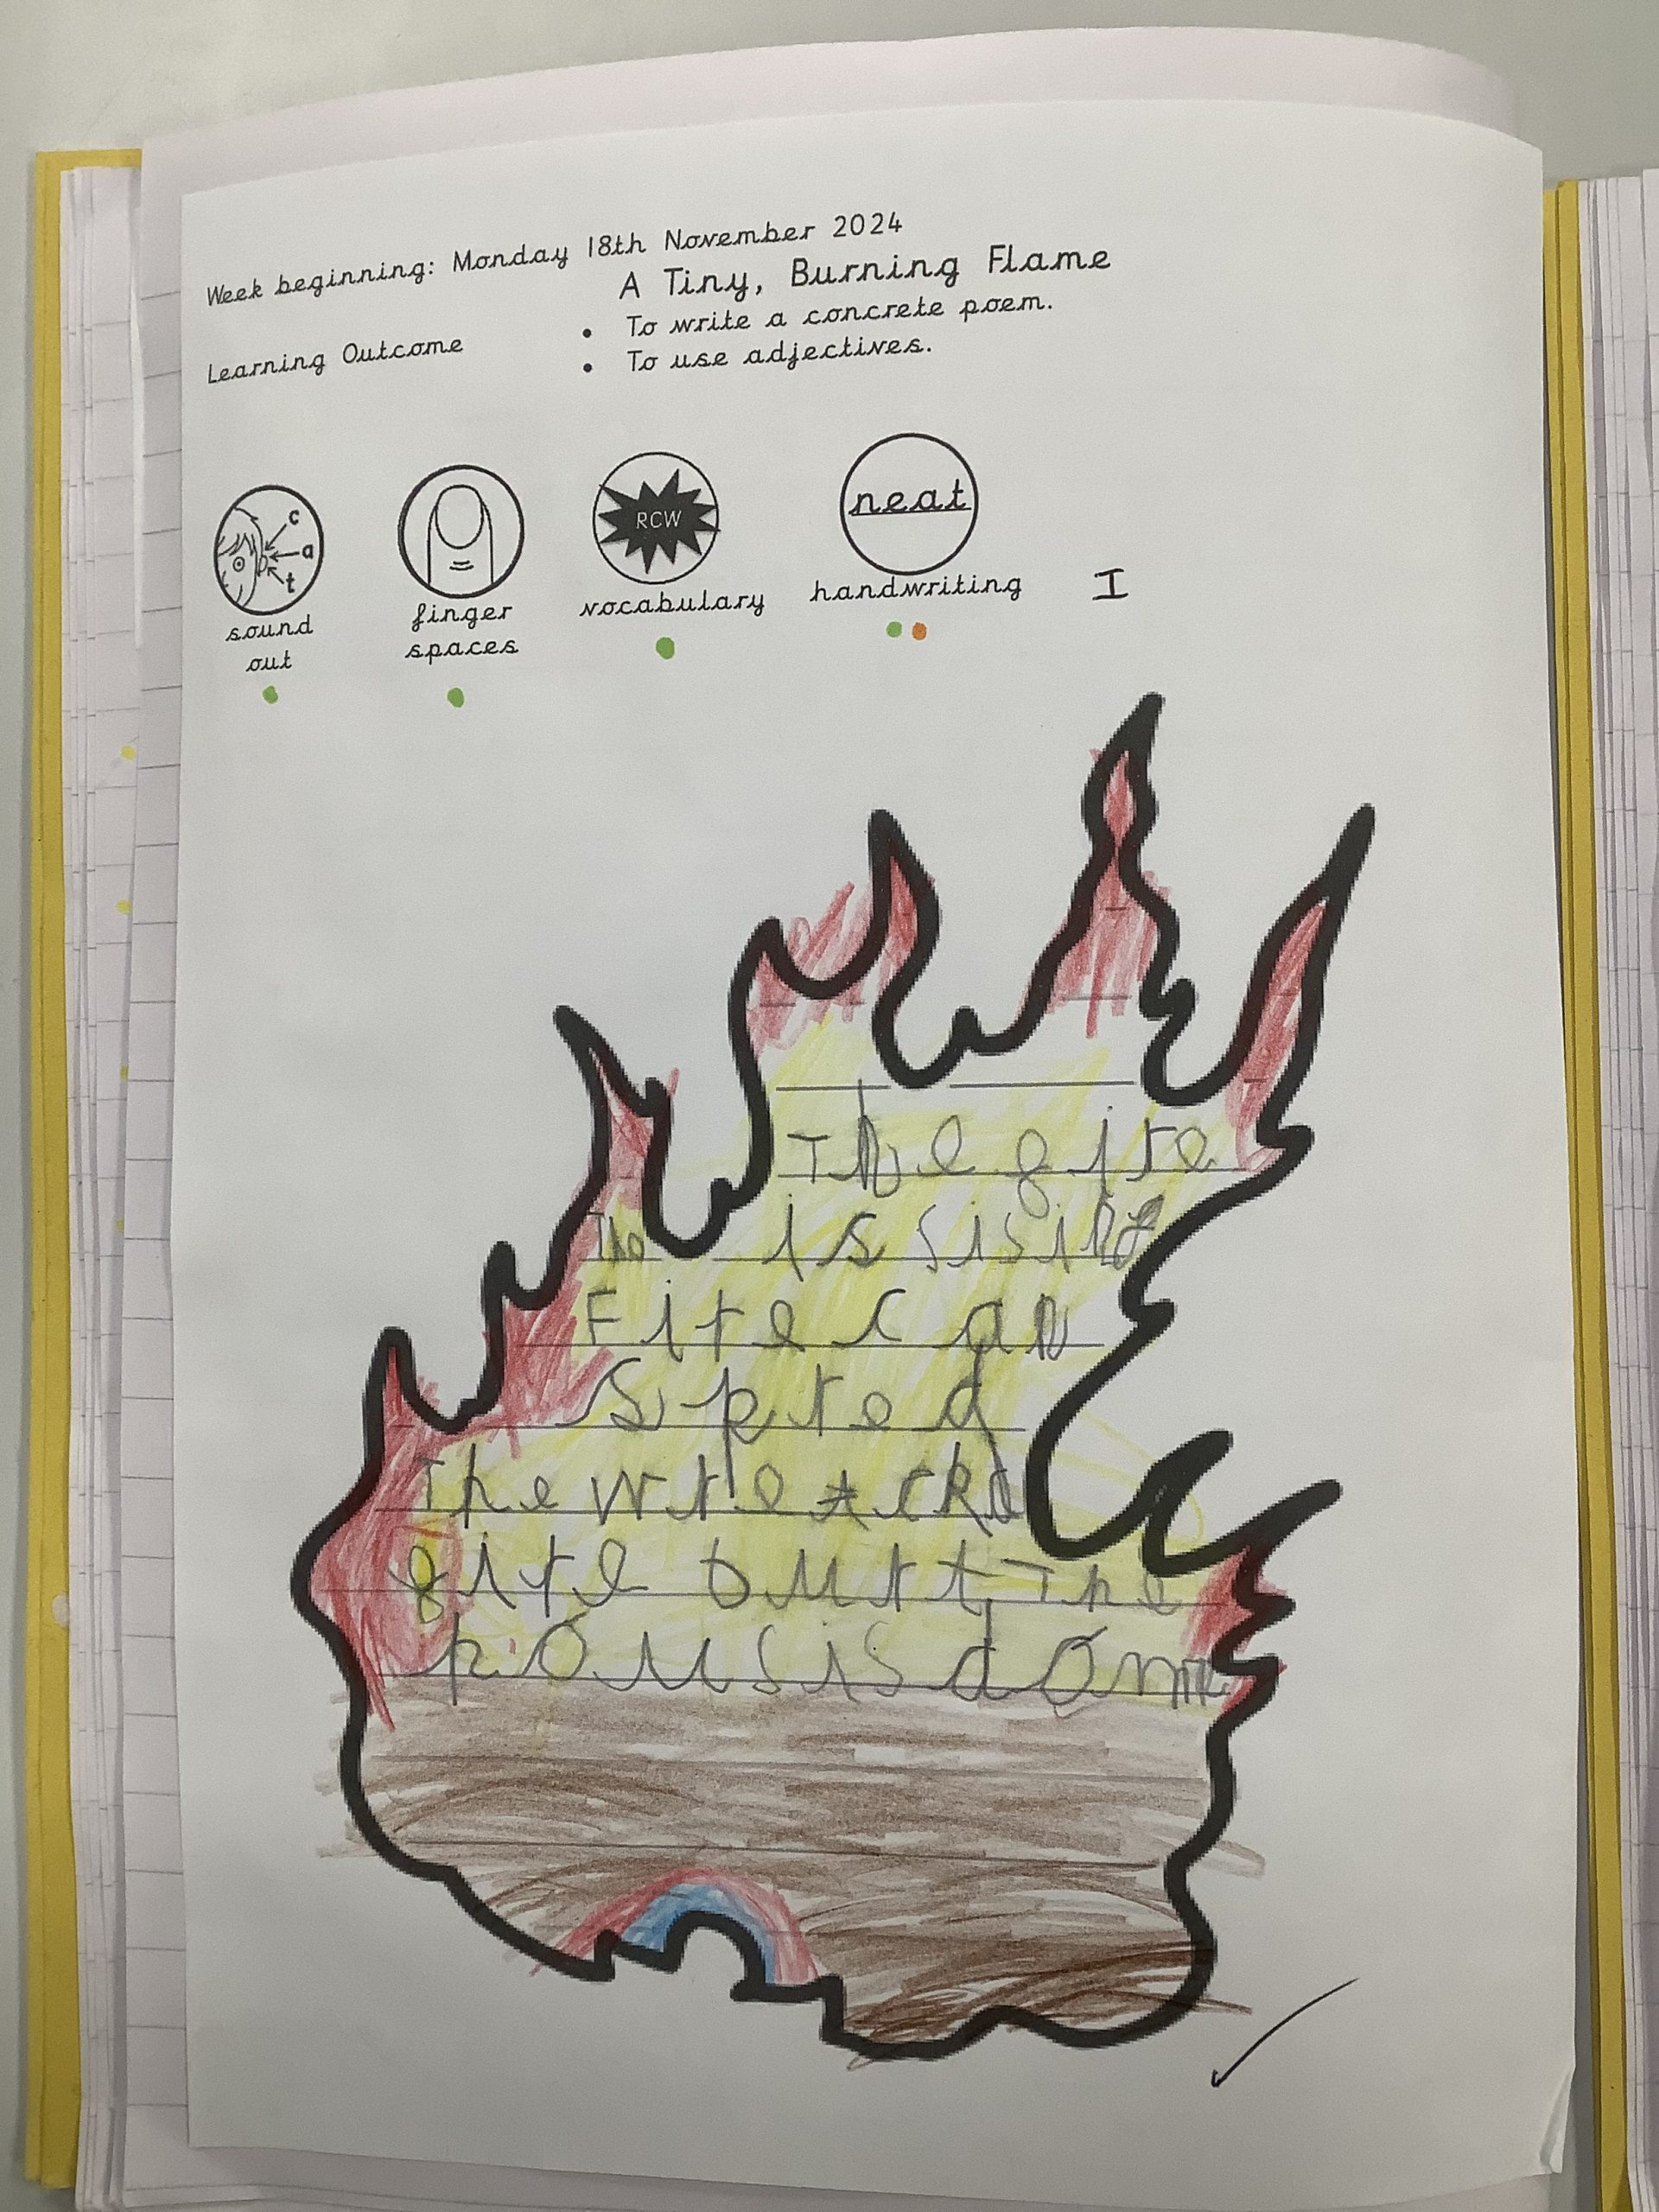 Week beginning: Monday 18th November 2024
A Tiny, Burning Flame
Learning Outcome
• To write a concrete poem.
• To use adjectives.
c
a
t
RCW
neat
sound
out
finger
spaces
vocabulary
handwriting
I
The fire
The is
Fire can
spred
The
fire burt The
hous is